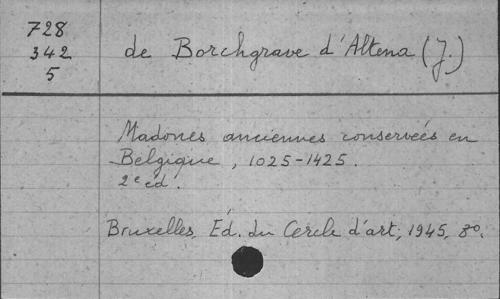 728
342
5
de Borchgrave d'Altena (J.)
Madones anciennes conservées en
Belgique, 1025-1425.
2e éd.
Bruxelles, Éd. du Cercle d'art, 1945, 8o.